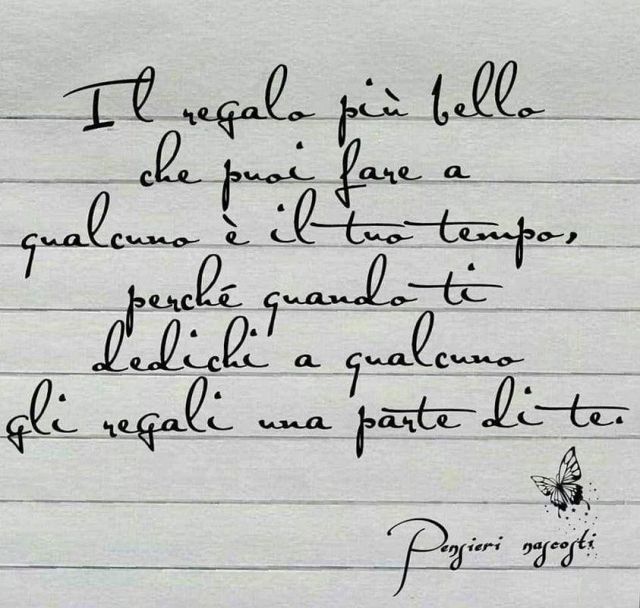 Il regalo più bello
che puoi fare a
qualcuno è il tuo tempo,
perché quando ti
dedichi a qualcuno
gli regali una parte di te.
Pensieri nascosti